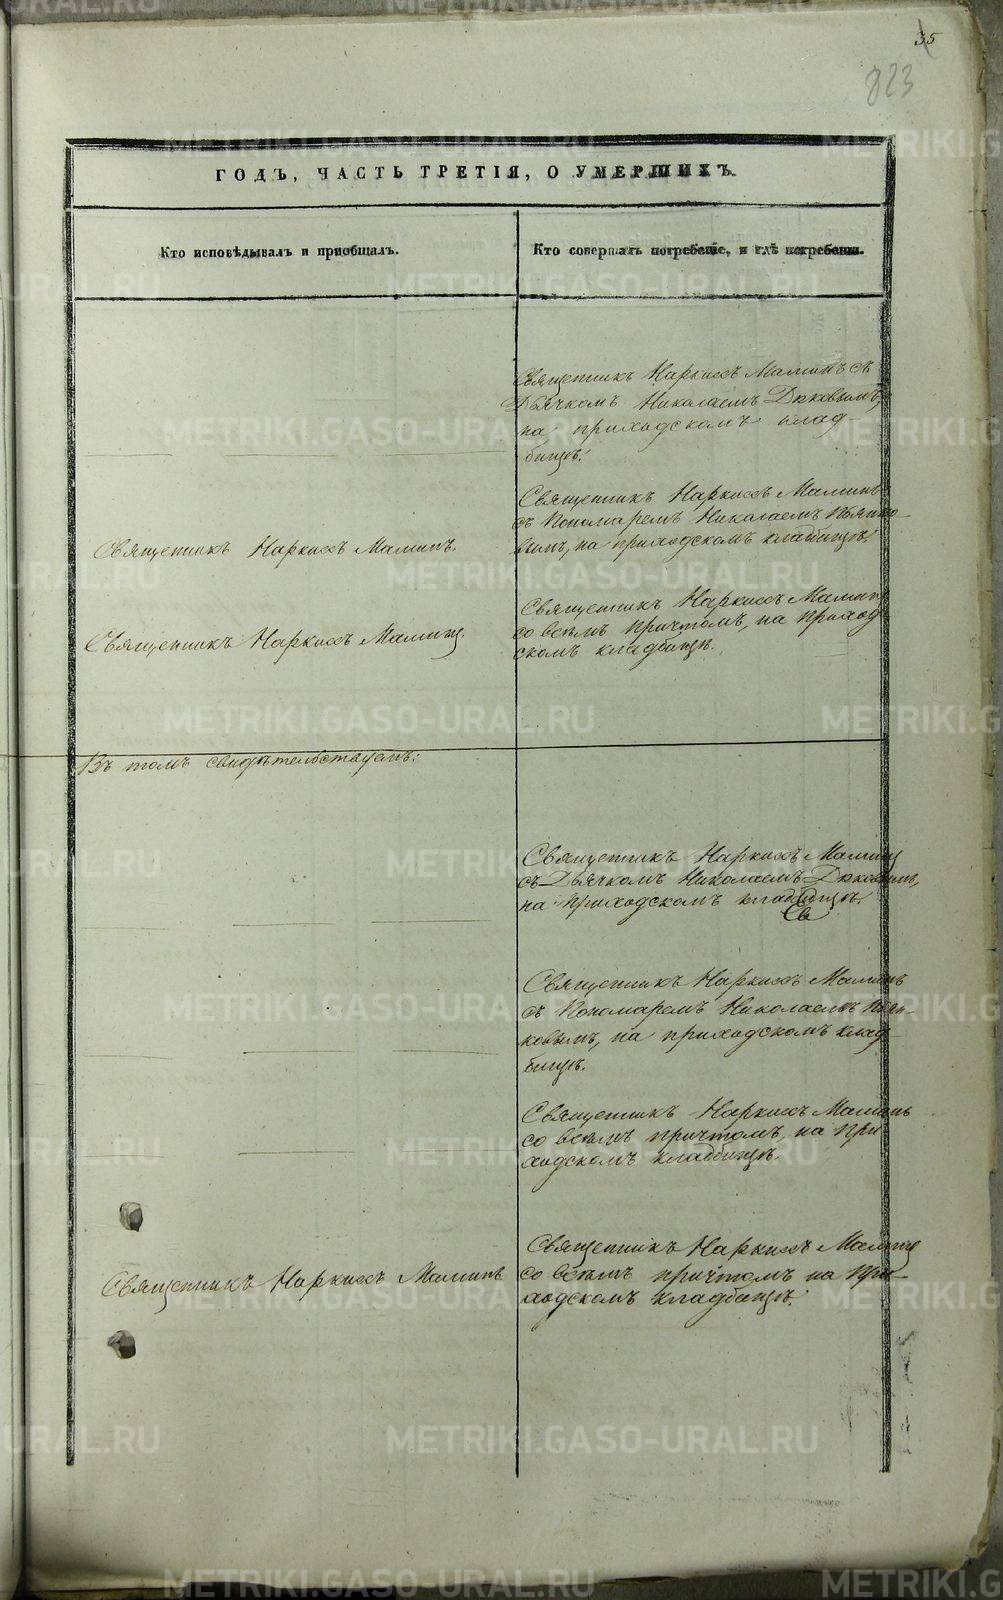 35
823
ГОДЪ, ЧАСТЬ ТРЕТІЯ, О УМЕРШИХЪ.
Кто исповѣдывалъ и пріобщалъ.
Кто совершалъ погребеніе, и гдѣ погребены.
Священникъ Наркисъ Маминъ съ
Дьячкомъ Николаемъ Дюковымъ,
на приходскомъ клад-
бищѣ.
Священникъ Наркисъ Маминъ.
Священникъ Наркисъ Маминъ
съ Пономаремъ Николаемъ
вымъ, на приходскомъ кладбищѣ.
Священникъ Наркисъ Маминъ.
Священникъ Наркисъ Маминъ
со всѣмъ причтомъ, на приход
скомъ кладбищѣ.
Въ томъ свидѣтельствуемъ:
Священникъ Наркисъ Маминъ
съ Дьячкомъ Николаемъ Дюковымъ,
на приходскомъ кладбищѣ.
Священникъ Наркисъ Маминъ
съ Пономаремъ Николаемъ
ковымъ, на приходскомъ клад
бищѣ.
Священникъ Наркисъ Маминъ
со всѣмъ причтомъ, на при
ходскомъ кладбищѣ.
Священникъ Наркисъ Маминъ
Священникъ Наркисъ Маминъ
со всѣмъ причтомъ на при-
ходскомъ кладбищѣ.
METRIKI.GASO-URAL.RU